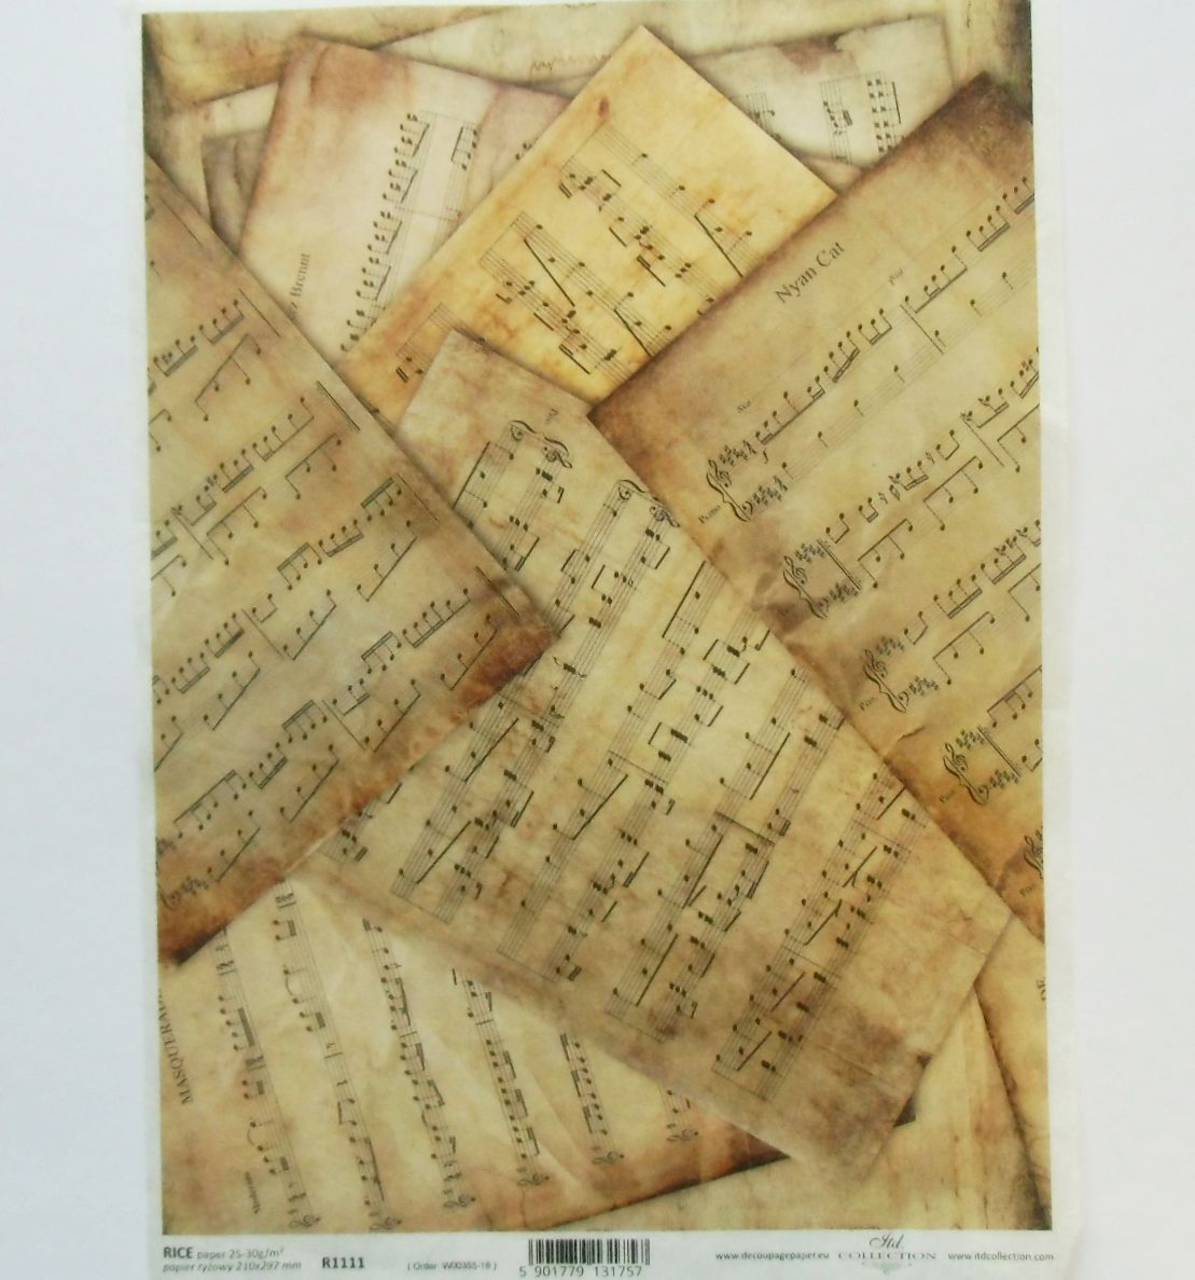 Nyan Cat
Piano
MASQUERA
RICE paper 25-30g/m²
papier ryżowy 210x297 mm
R1111
( Order W00355-18 )
5 901779 131757
www.decoupagepaper.eu
itd.
COLLECTION
www.itdcollection.com